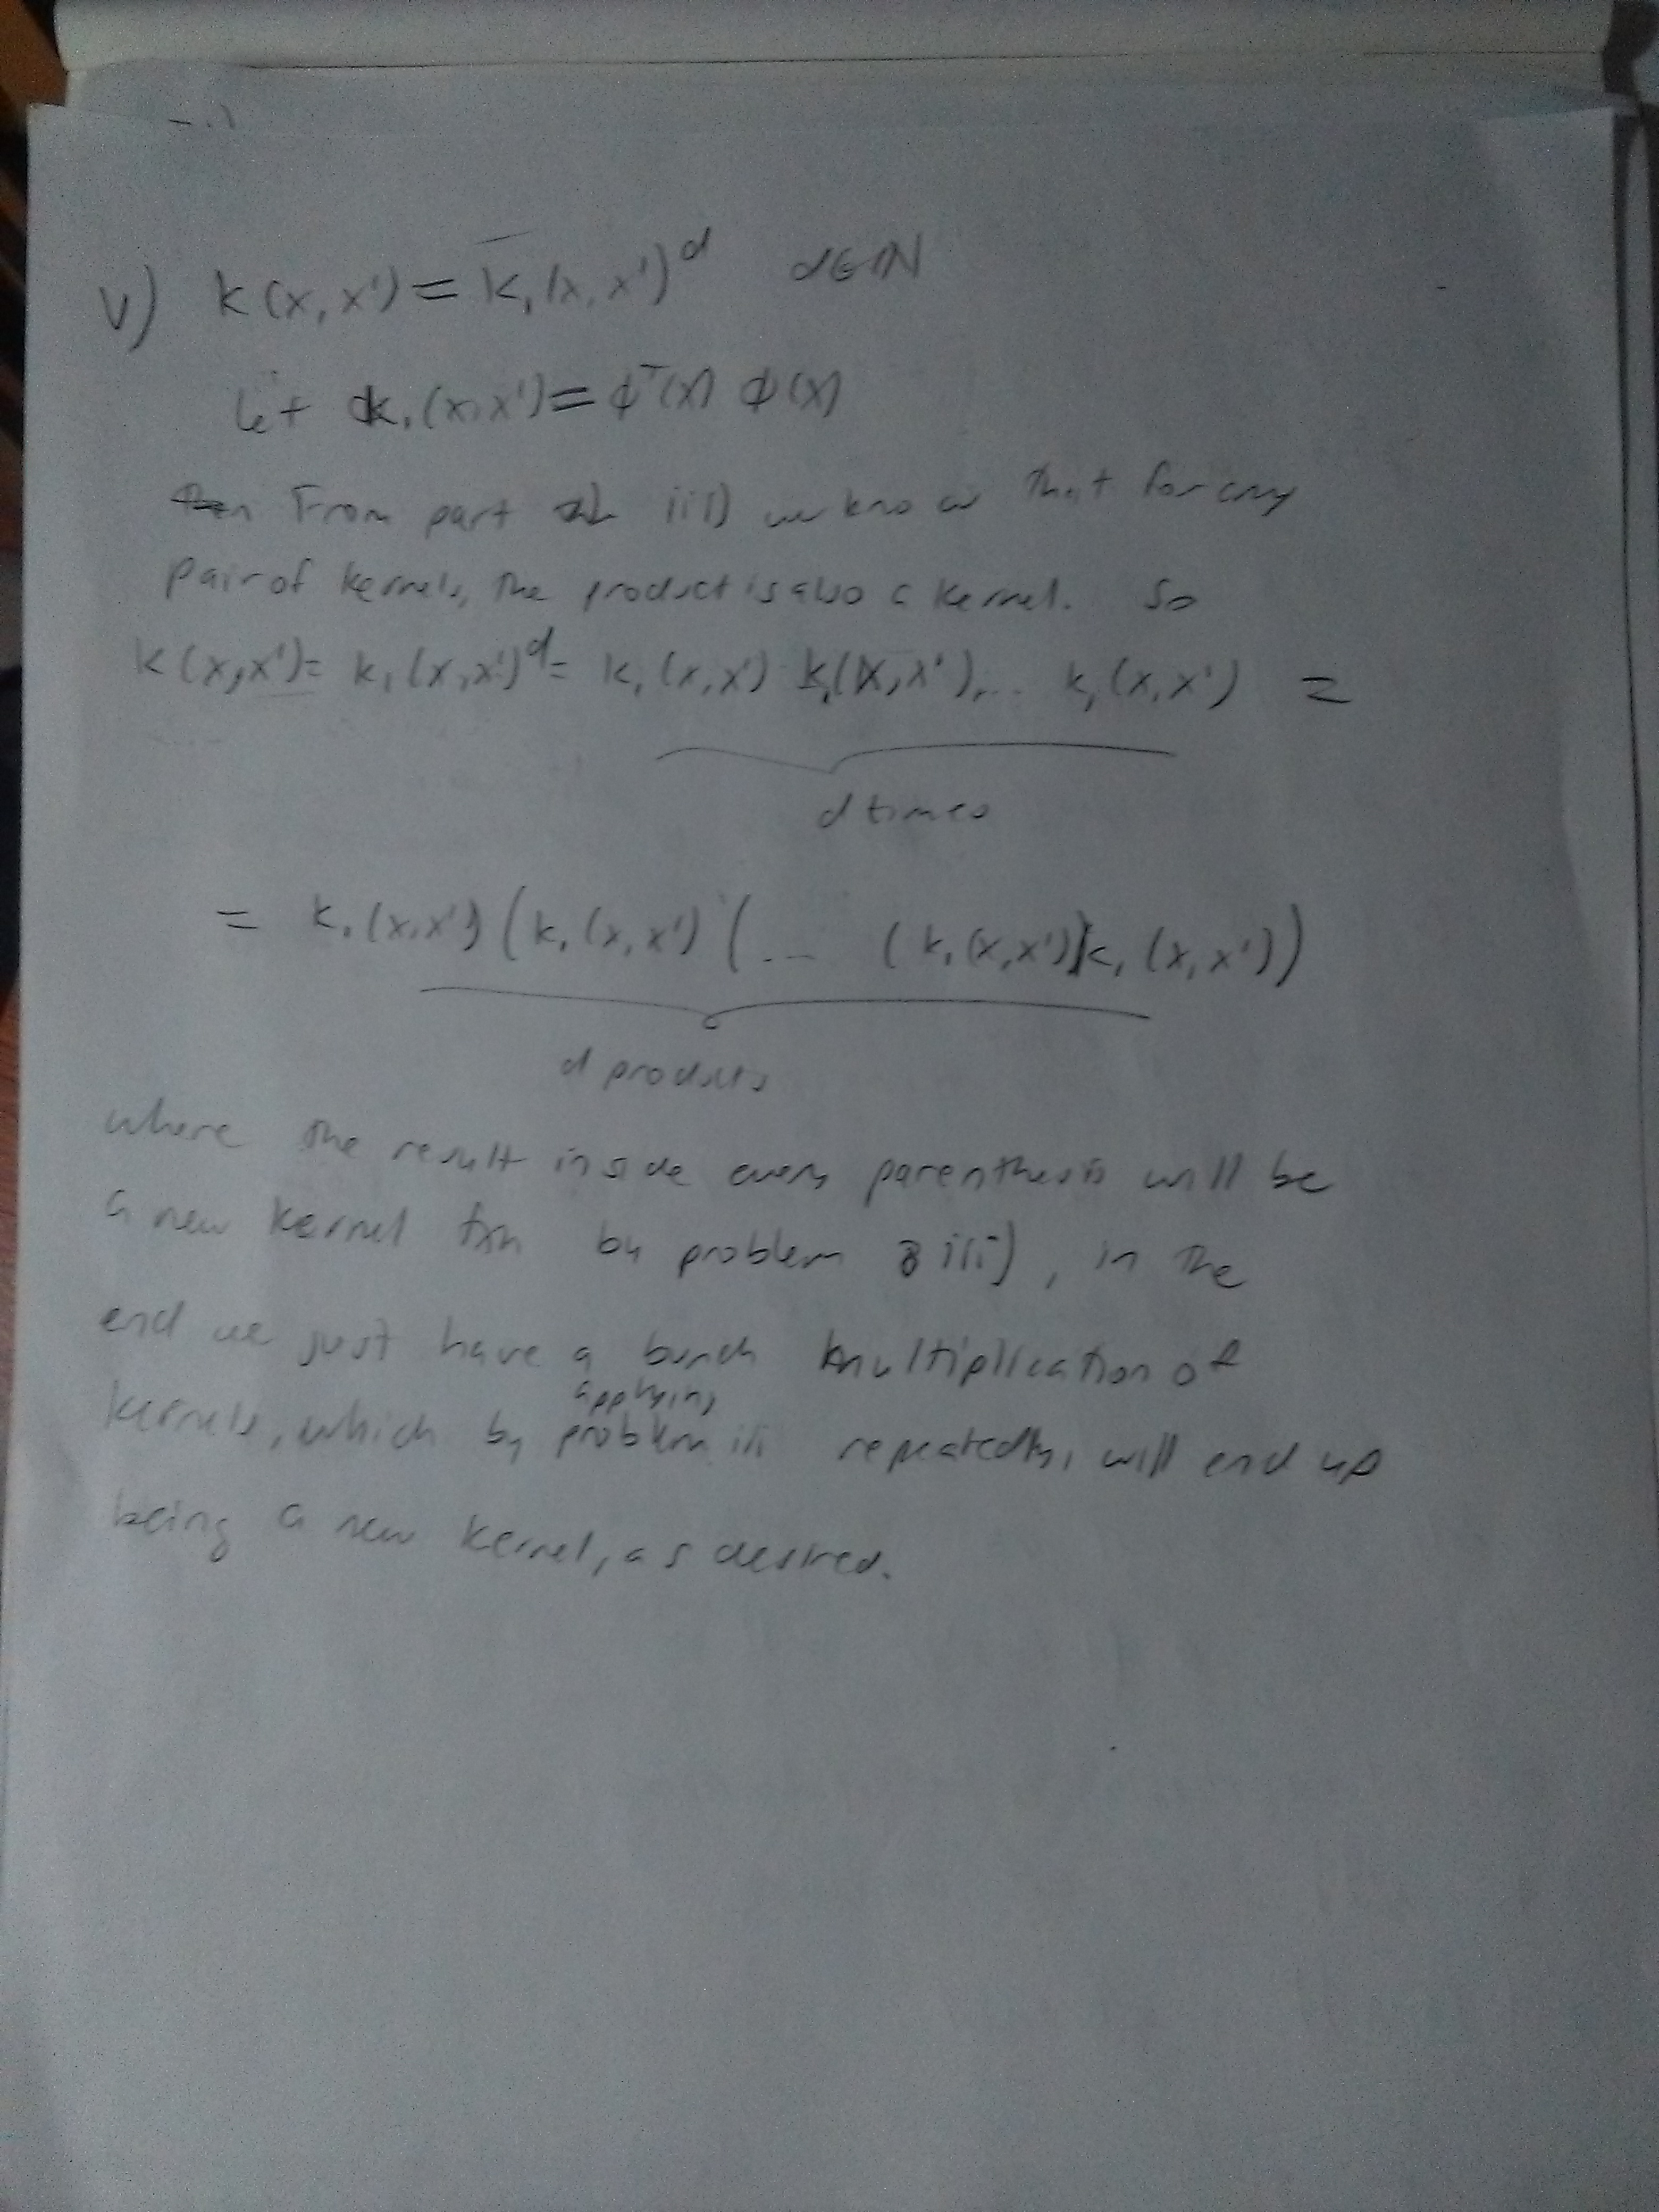 v) k(x,x') = k₁(x,x')^d d∈ℕ
Let k₁(x,x') = ϕᵀ(x) ϕ(x)
From part iii) we know that for any
pair of kernels, the product is also a kernel. So
k(x,x') = k₁(x,x')^d = k₁(x,x') k₁(x,x')... k₁(x,x') =
d times
= k₁(x,x') (k₁(x,x') (... (k₁(x,x') k₁(x,x'))
d products
where the result inside every parenthesis will be
a new kernel fxn by problem iii), in the
end we just have a bunch multiplication of
applying
kernels, which by problem iii repeatedly, will end up
being a new kernel, as desired.